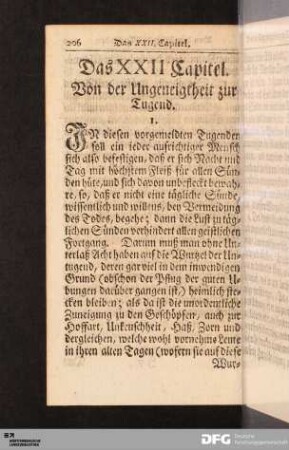 206 Das XXII. Capitel.
Das XXII Capitel.
Von der Ungeneigtheit zur
Tugend.
I.
IN diesen vorgemeldten Tugenden
soll ein ieder aufrichtiger Mensch
sich also befestigen, daß er sich Nacht und
Tag mit höchstem Fleiß für allen Sün-
den hüte, und sich davon unbefleckt bewah-
re, so, daß er nicht eine tägliche Sünde,
wissentlich und willens, bey Vermeidung
des Todes, begehe; dann die Lust zu täg-
lichen Sünden verhindert allen geistlichen
Fortgang. Darum muß man ohne Un-
terlaß Acht haben auf die Wurtzel der Un-
tugend, deren gar viel in dem inwendigen
Grund (obschon der Pflug der guten U-
bungen darüber gangen ist,) heimlich ste-
cken bleiben; als da ist die unordentliche
Zuneigung zu den Geschöpfen, auch zur
Hoffart, Unkeuschheit, Haß, Zorn und
dergleichen, welche wohl vornehme Leute
in ihren alten Tagen (wofern sie auf diese
Wur-
DFG Deutsche
Forschungsgemeinschaft